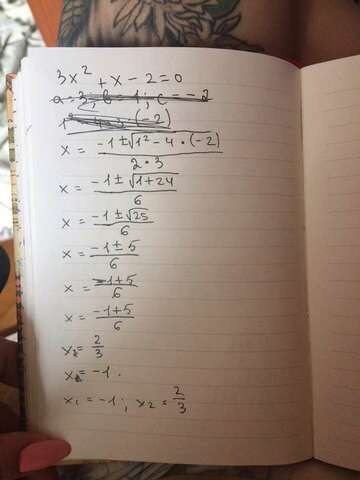 3x² + x - 2 = 0
a = 3; b = 1; c = -2
x = (-1 ± √(1² - 4 · (-2))) / (2 · 3)
x = (-1 ± √(1 + 24)) / 6
x = (-1 ± √25) / 6
x = (-1 ± 5) / 6
x = (-1 + 5) / 6
x = (-1 + 5) / 6
x₂ = 2/3
x₁ = -1.
x₁ = -1; x₂ = 2/3